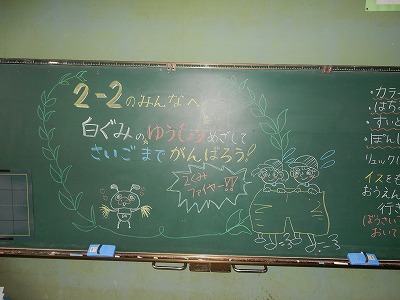 2-2のみんなへ
白ぐみのゆうしょうめざして
さいごまでがんばろう!
ファイヤー!!
・カラー
・はちま
・すいと
・ぼうし
リュックに
イスをも
おうえん
行き
(ぼうさい
おいて